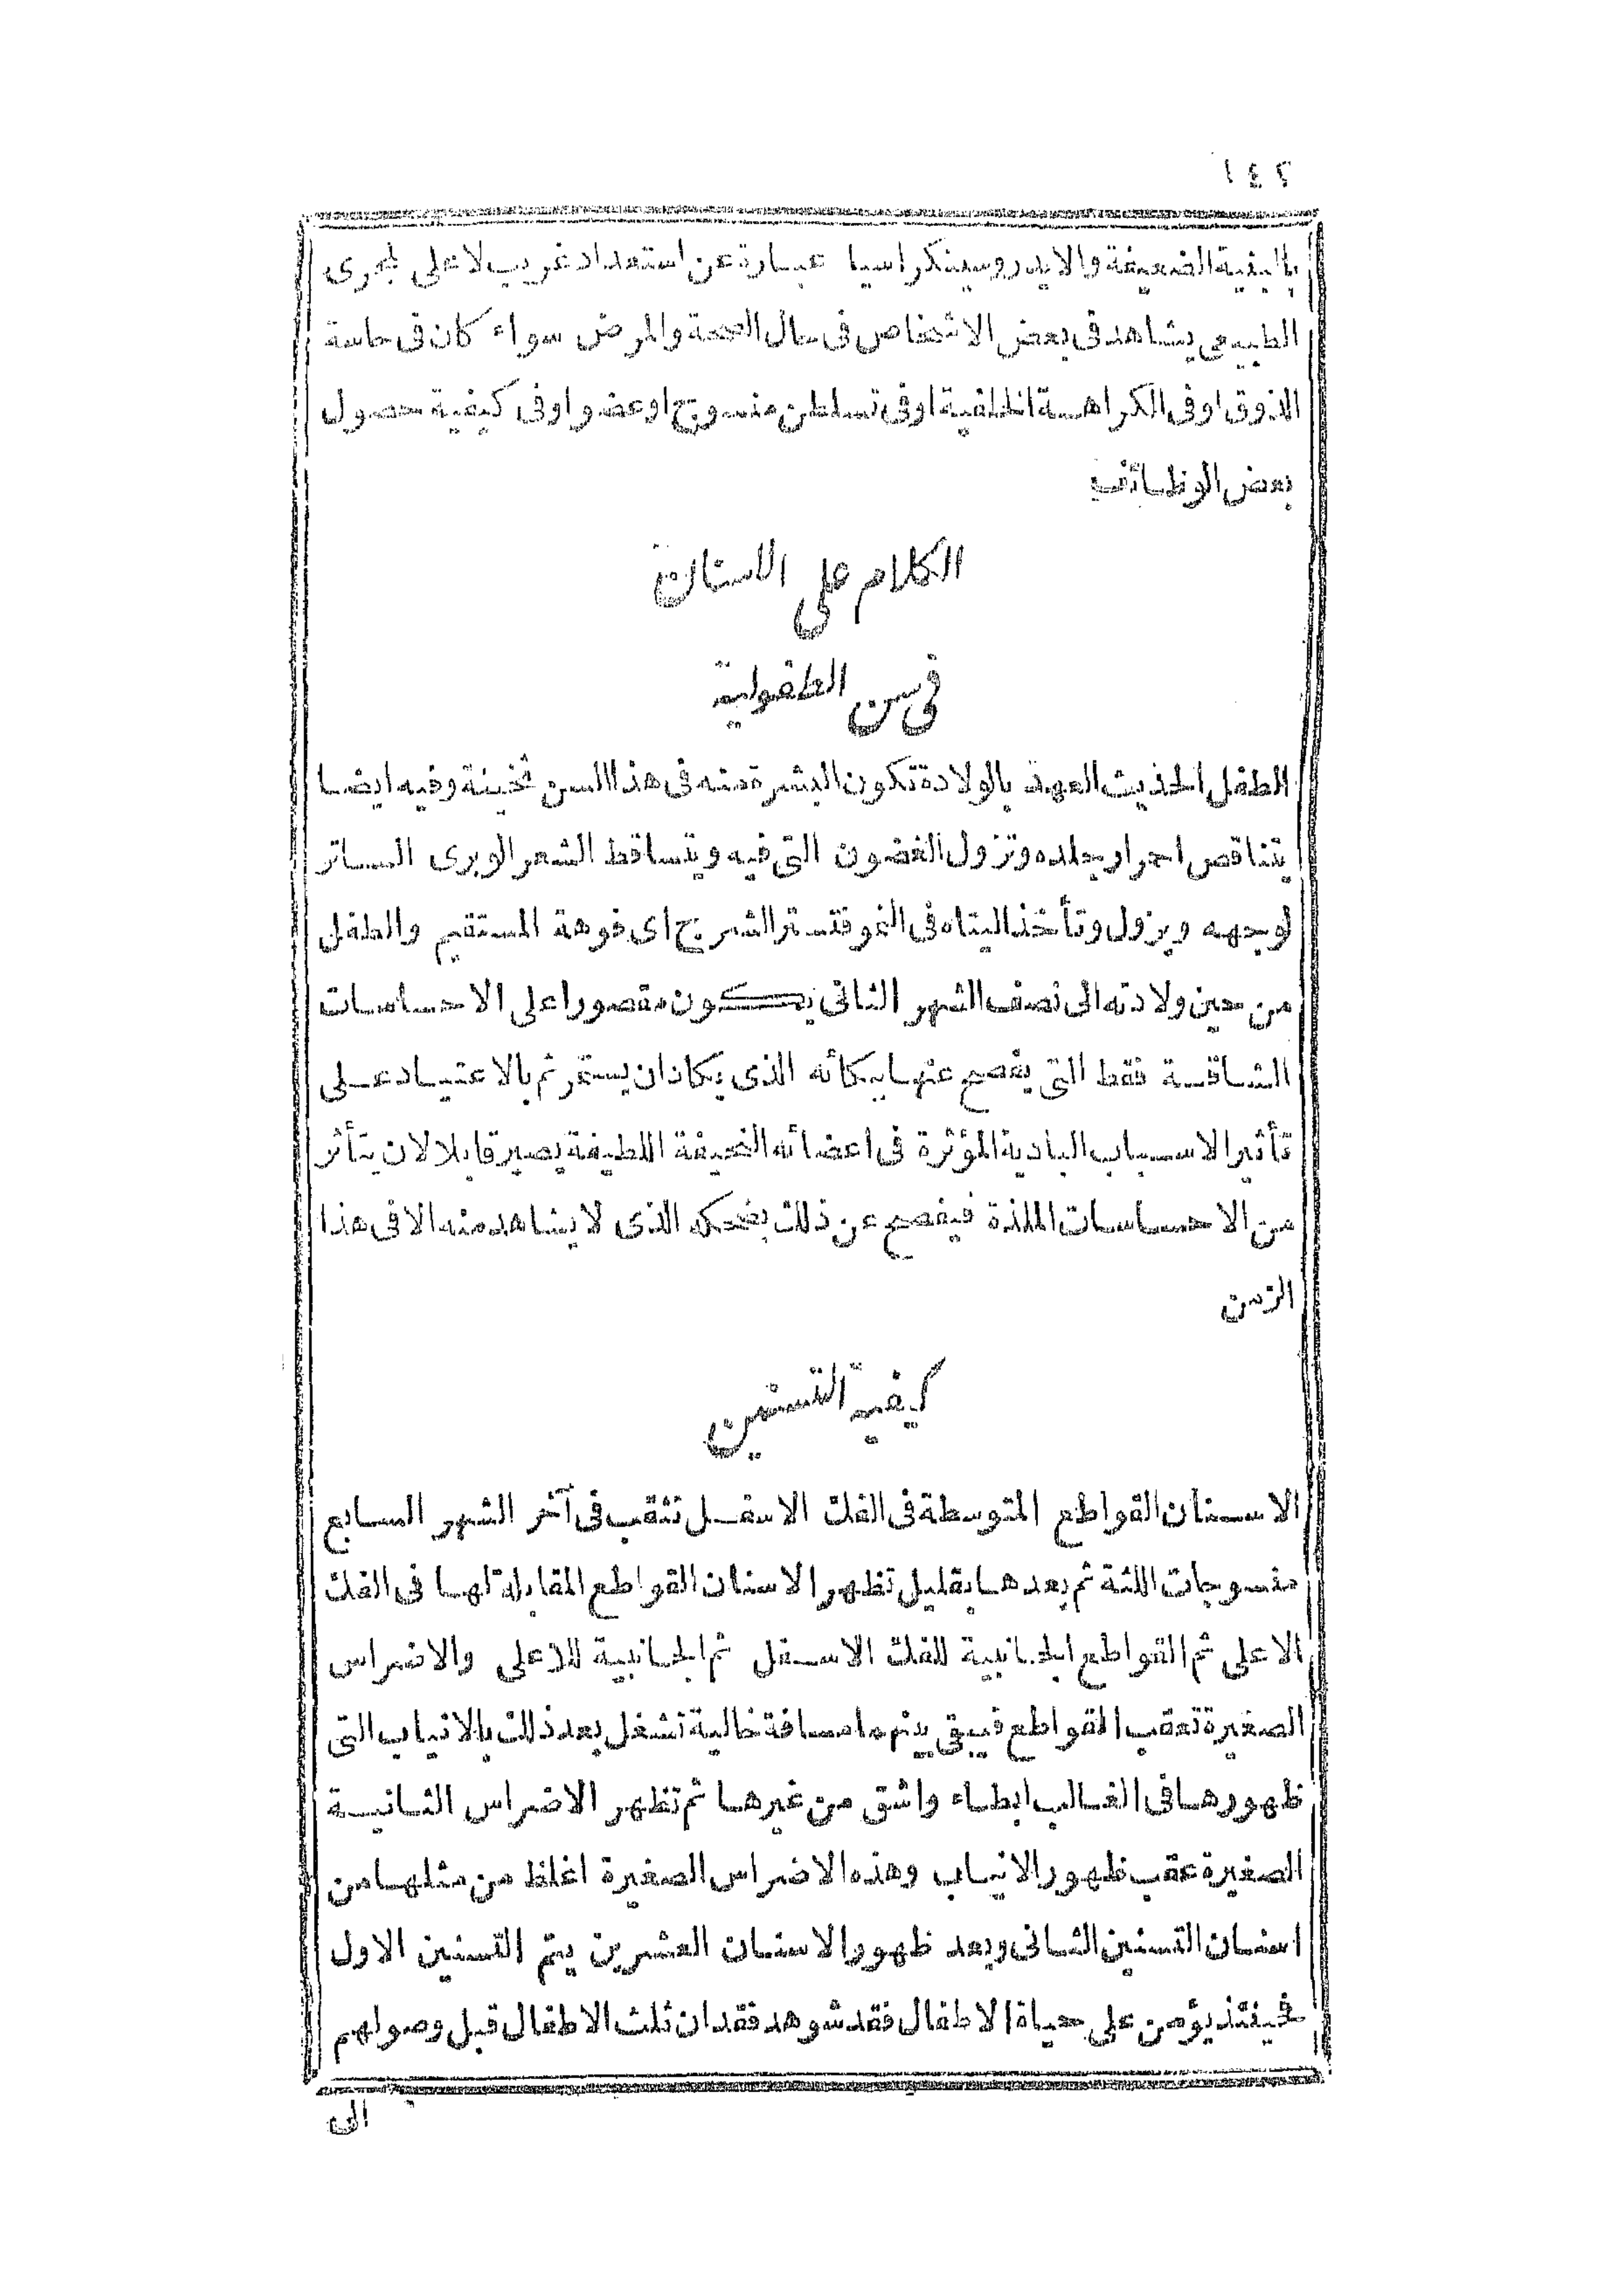 ١٤٢
بالبنية الضعيفة والايدروسينكراسيا عبارة عن استعداد غريب لا على المجرى
الطبيعى يشاهد فى بعض الاشخاص فى حال الصحة والمرض سواء كان فى حاسة
الذوق اوفى الكراهة الخلقية اوفى تسلطن منسوج اوعضو اوفى كيفية حصول
بعض الوظائف
الكلام على الاسنان
فى سن الطفولية
الطفل الحديث العهد بالولادة تكون البشرة منه فى هذا السن ثخينة وفيه ايضا
يتناقص احمرار جلده وتزول الغضون التى فيه ويتساقط الشعر الوبرى الساتر
لوجهه ويزول وتأخذ اليتاه فى النمو فتستر الشرج اى فوهة المستقيم والطفل
من حين ولادته الى نصف الشهر الثانى يكون مقصورا على الاحساسات
الشاقة فقط التى يفصح عنها ببكائه الذى يكاد ان يستمر ثم بالاعتياد على
تأثير الاسباب البادية المؤثرة فى اعضائه الضعيفة اللطيفة يصير قابلا لان يتأثر
من الاحساسات الملذة فيفصح عن ذلك بضحكه الذى لا يشاهد منه الا فى هذا
الزمن
كيفية التسنين
الاسنان القواطع المتوسطة فى الفك الاسفل تثقب فى آخر الشهر السابع
منسوجات اللثة ثم بعدها بقليل تظهر الاسنان القواطع المقابلة لها فى الفك
الاعلى ثم القواطع الجانبية للفك الاسفل ثم الجانبية للاعلى والاضراس
الصغيرة تعقب القواطع فيبقى بينهما مسافة خالية تشغل بعد ذلك بالانياب التى
ظهورها فى الغالب ابطاء واشق من غيرها ثم تظهر الاضراس الثانية
الصغيرة عقب ظهور الانياب وهذه الاضراس الصغيرة اغلظ من مثلها من
اسنان التسنين الثانى وبعد ظهور الاسنان العشرين يتم التسنين الاول
فحينئذ يؤمن على حياة الاطفال فقد شوهد فقدان ثلث الاطفال قبل وصولهم
الى